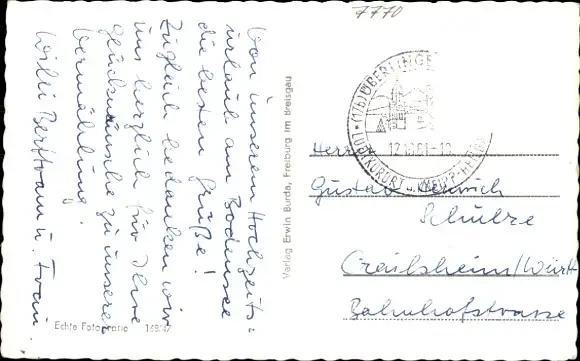 7770
Von unserem Hochzeits-
urlaub am Bodensee
die besten Grüße!
Zugleich bedanken wir
uns herzlich für Ihre
Glückwünsche zu unserer
Vermählung.
Willi Bertram u. Frau
Echte Fotografie
Verlag Erwin Burda, Freiburg im Breisgau
(17b) ÜBERLINGEN
LUFTKURORT u.
Herrn
Gustav Heinrich
Schulze
Crailsheim/Württ
Bahnhofstrasse